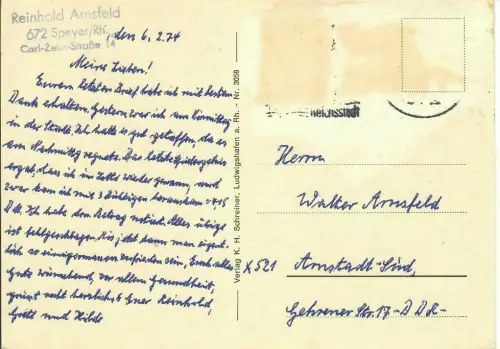 Reinhold Arnsfeld
672 Speyer/Rh.
Carl-Zeiss-Straße 14
, den 6.2.74
Meine Lieben!
Euern letzten Brief habe ich mit bestem
Dank erhalten. Gestern war ich am Vormittag
in der Stadt. Ich hatte es gut getroffen, da es
am Nachmittag regnete. Das letzte
ergab, dass ich im Lotto wieder gewann, und
zwar kam ich mit 3 Richtigen heraus
D.M. Ich habe den Betrag notiert. Alles übrige
ist fehlgeschlagen. Nun, da kann man eigent-
lich so einigermassen zufrieden sein. Euch alles
Gute wünschend, vor allem Gesundheit,
grüsst recht herzlichst Euer Reinhold,
Gretl und Hilde
Verlag K. H. Schreiner, Ludwigshafen a. Rh. - Nr. 3058
Reichsstadt
Herrn
Walter Arnsfeld
X521 Arnstadt-Süd,
Gehrener Str. 17 - DDR -